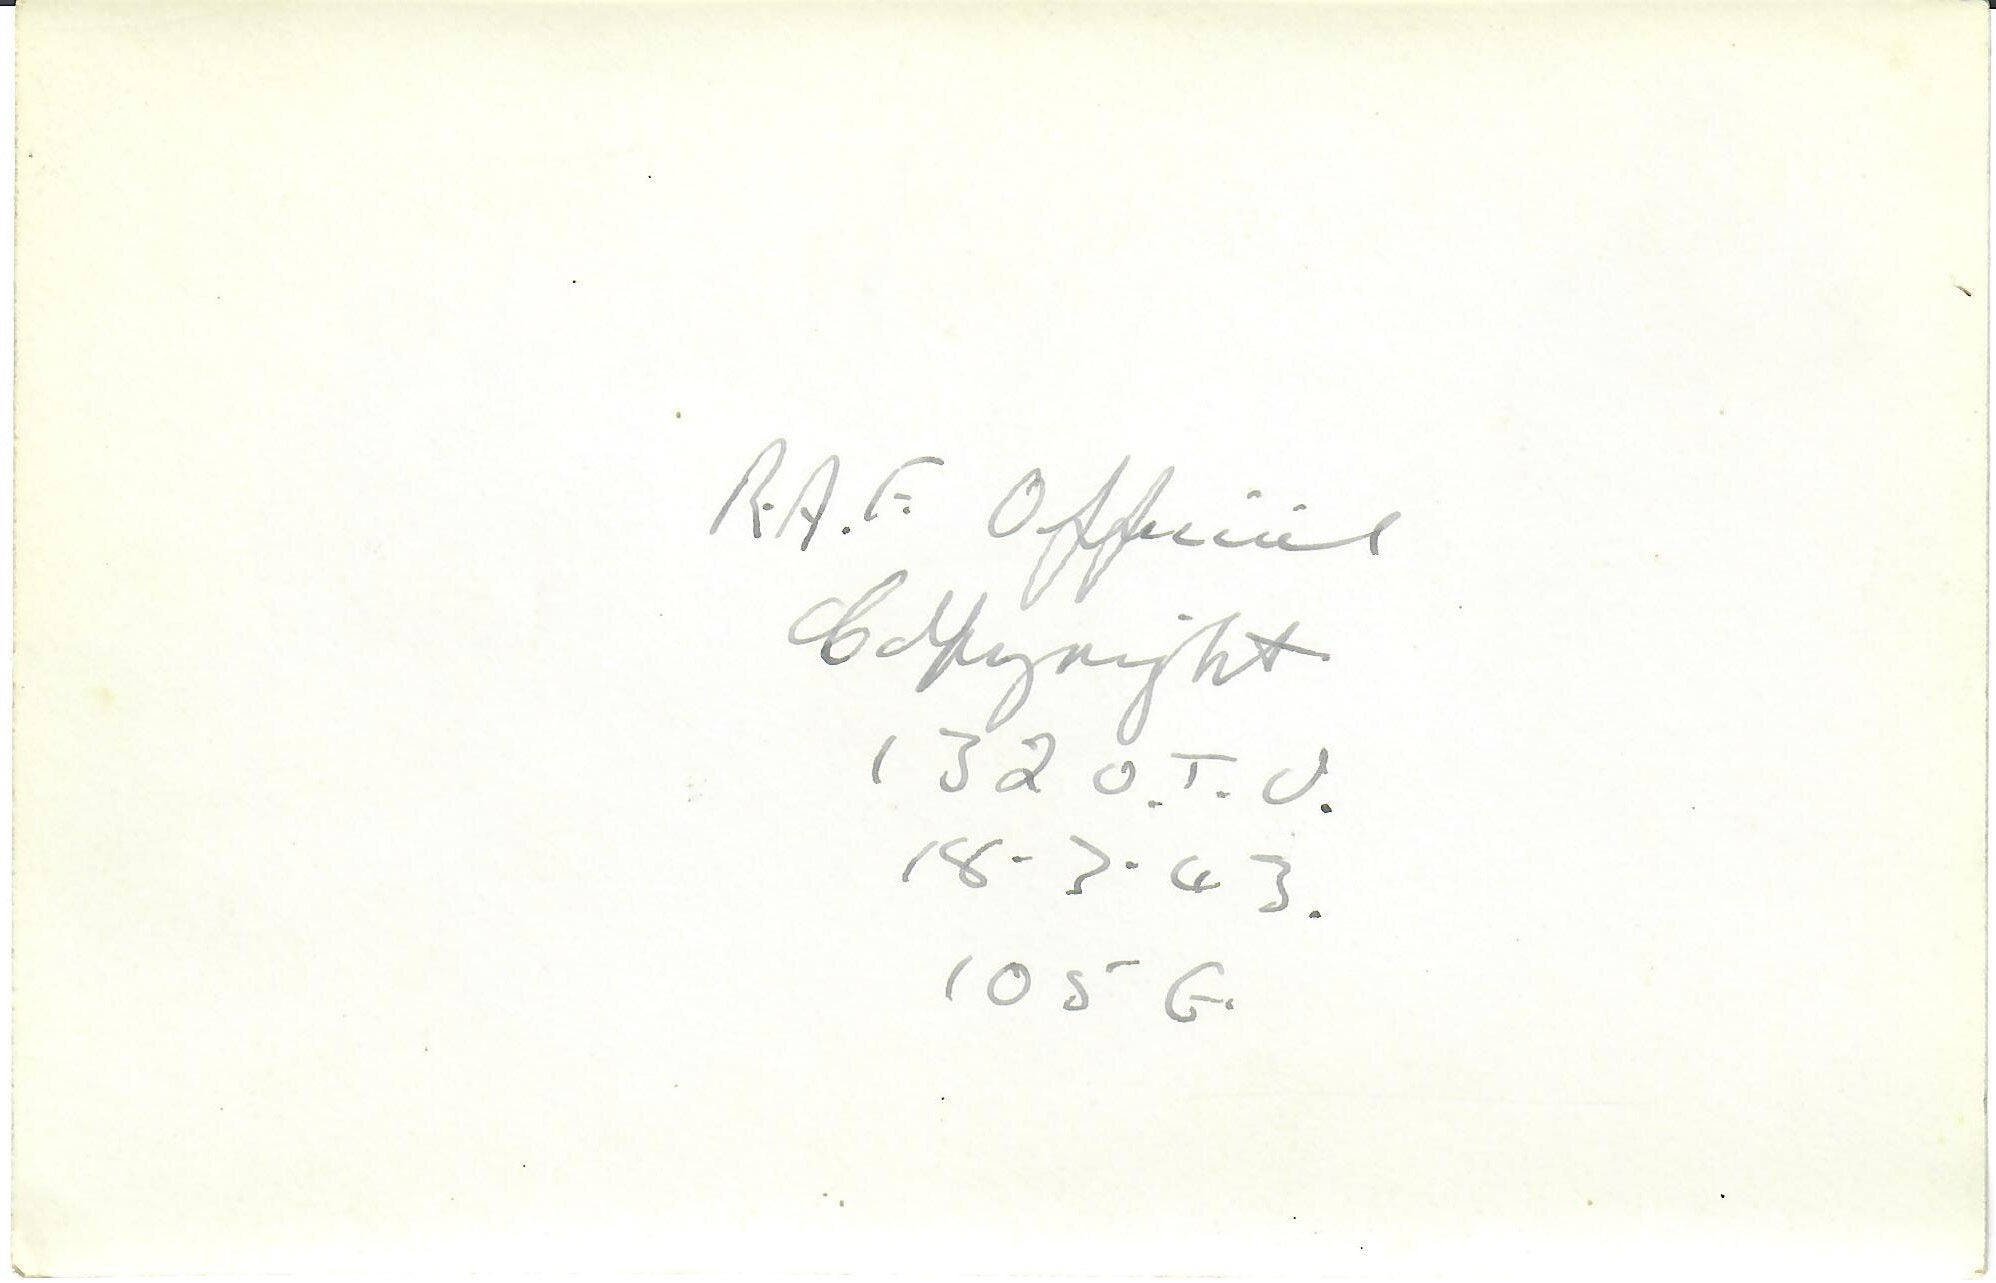 R.A.F. Official
Copyright
132 O.T.U.
18-3-43.
105 G.